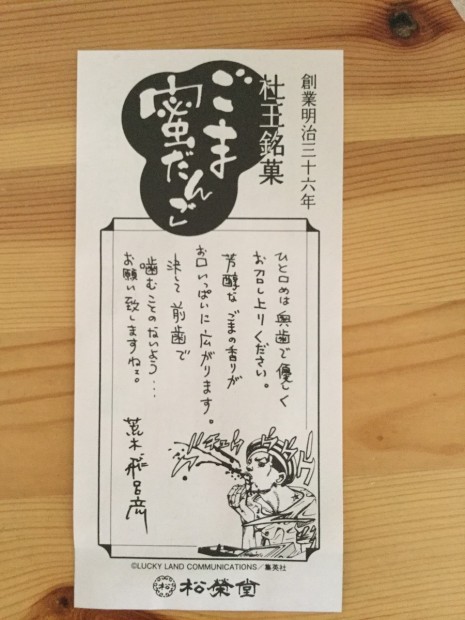 創業明治三十六年
杜王銘菓
ごま
蜜だんご
ひと口めは奥歯で優しく
お召し上りください。
芳醇な ごまの香りが
お口いっぱいに広がります。
決して前歯で
噛むことのないよう・・・
お願い致しますねェ。
荒木飛呂彦
©LUCKY LAND COMMUNICATIONS／集英社
松榮堂